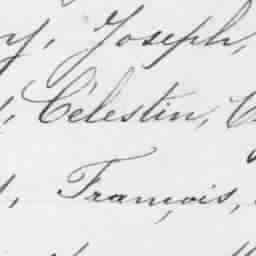 y, Joseph,
, Célestin, C
, François,